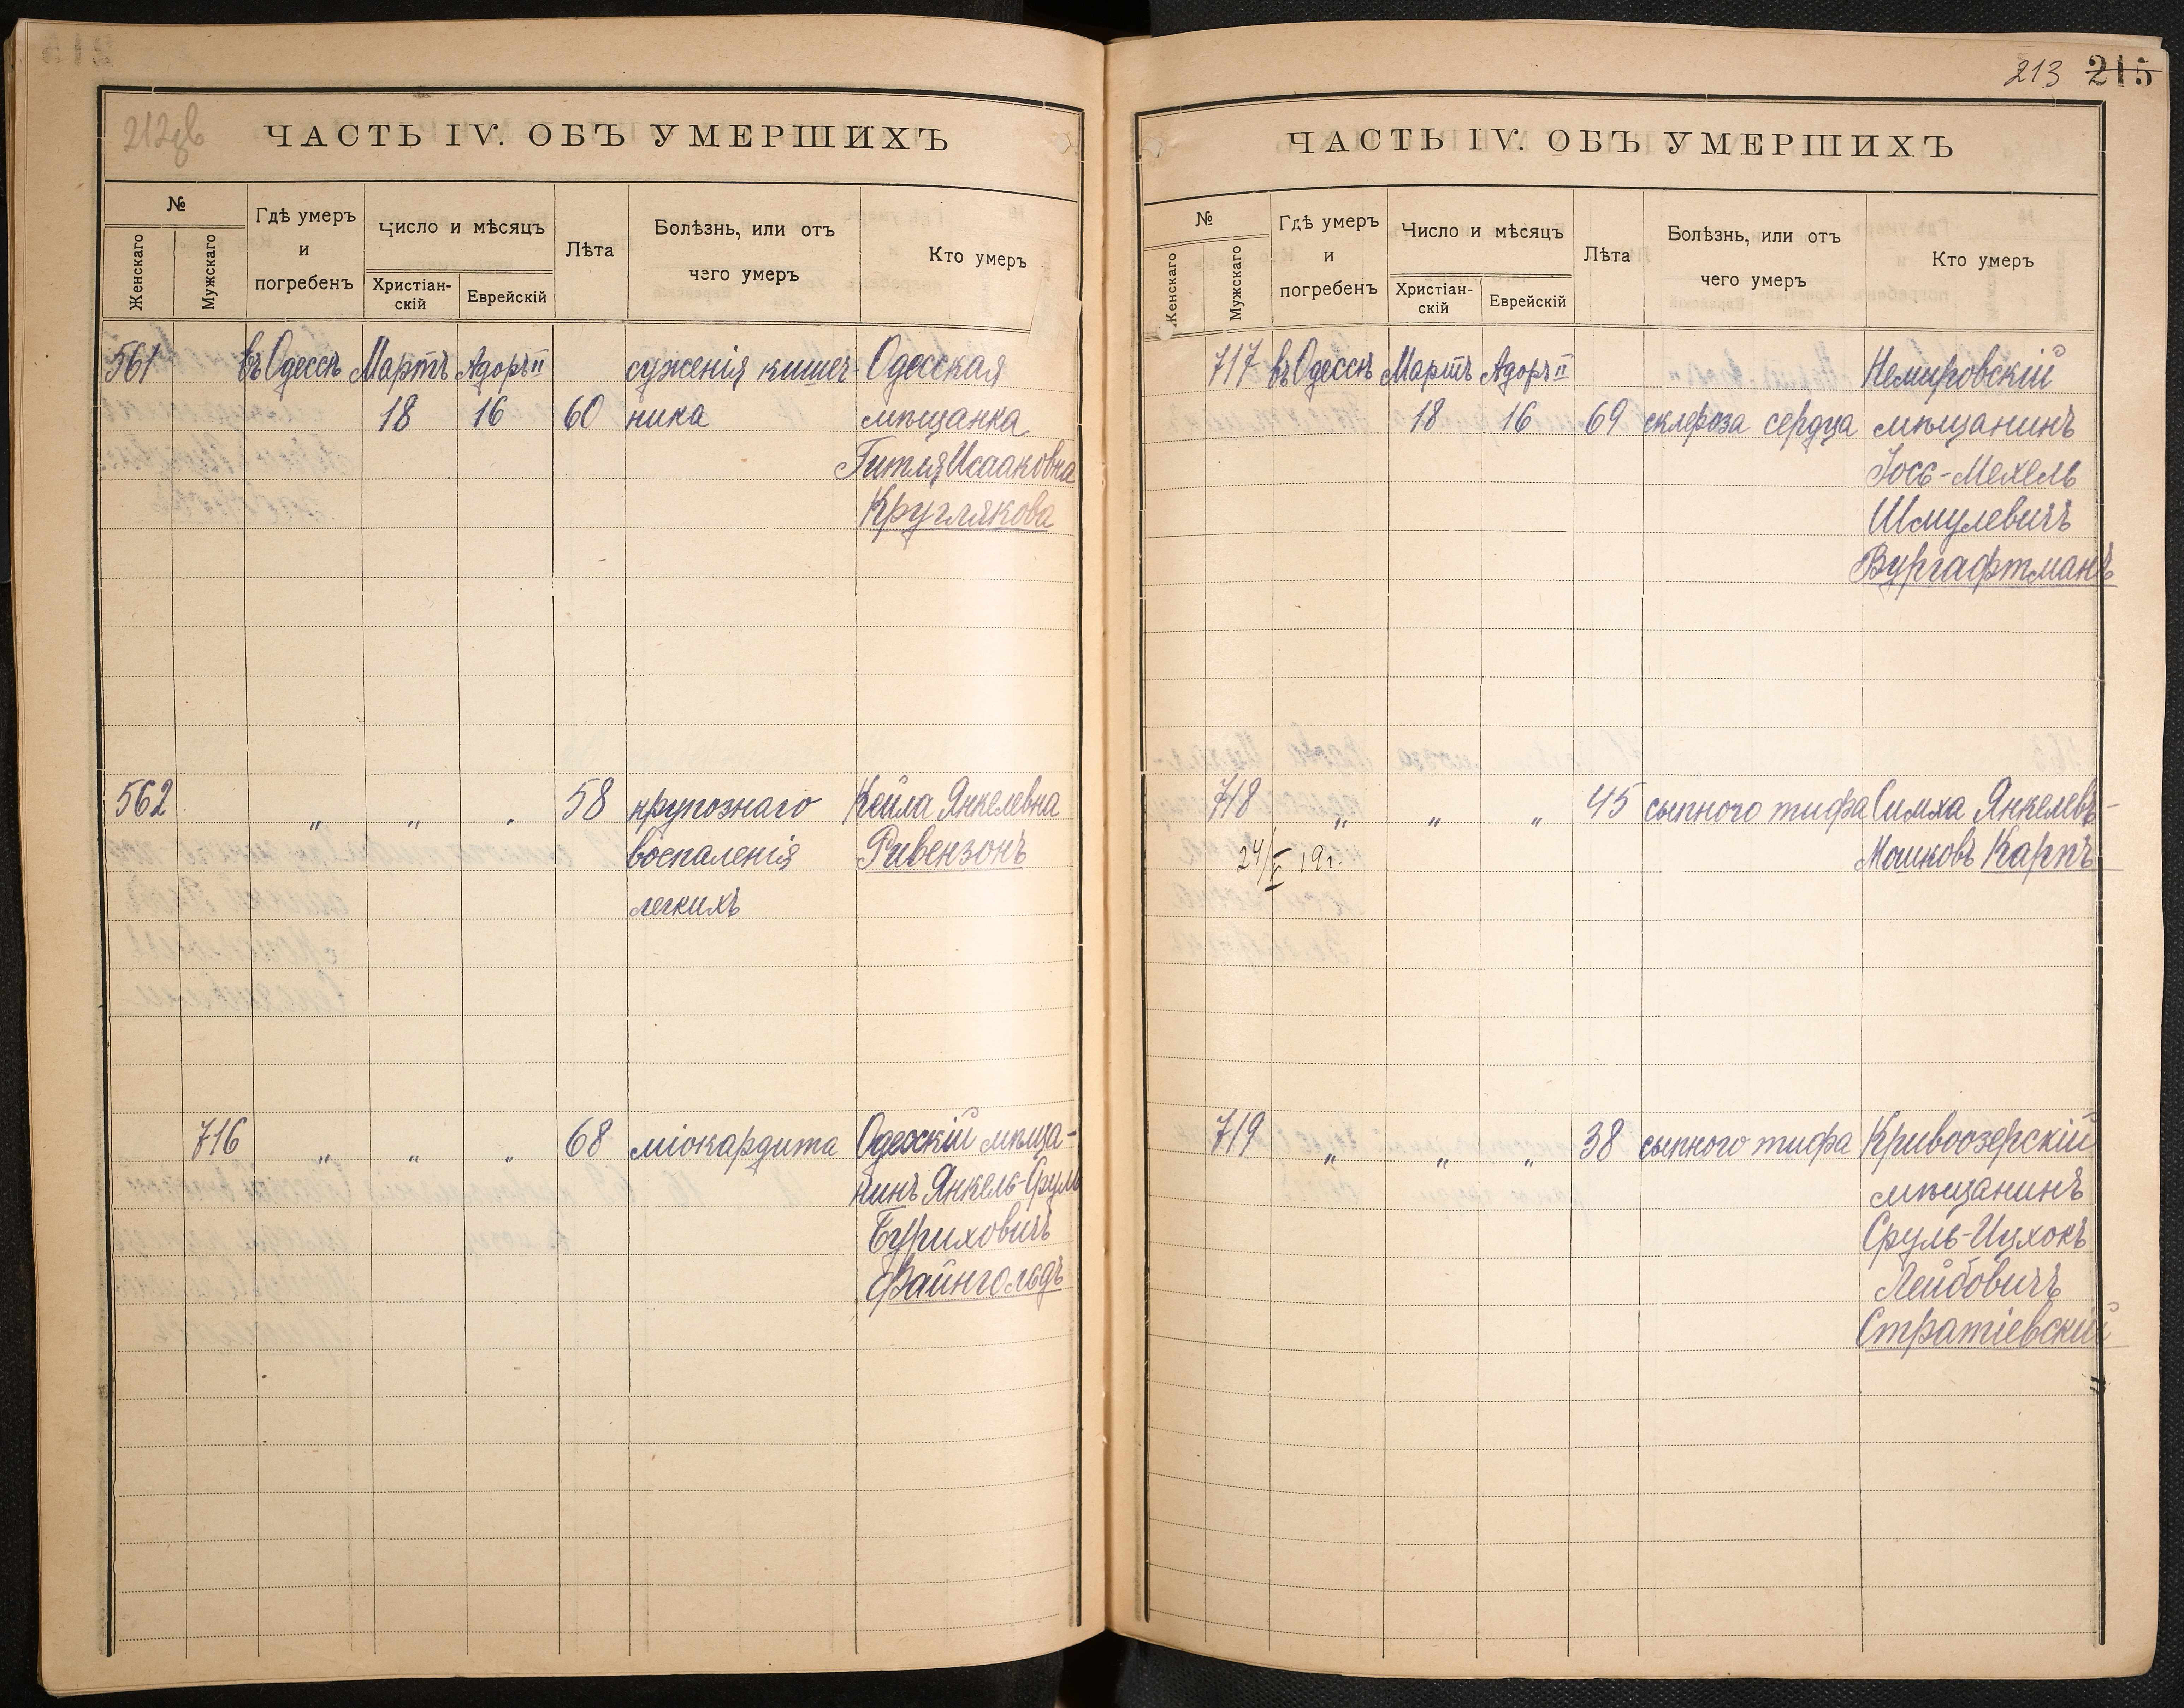 212об
ЧАСТЬ IV. ОБЪ УМЕРШИХЪ
№
Женскаго
Мужскаго
Гдѣ умеръ
и
погребенъ
Число и мѣсяцъ
Христіан-
скій
Еврейскій
Лѣта
Болѣзнь, или отъ
чего умеръ
Кто умеръ
561 въ Одессѣ Мартъ Адоръ II суженія кишеч- Одесская
18 16 60 ника мѣщанка
Гитля Исааковна
Круглякова
562 „ „ „ 58 крупознаго Кейла Янкелевна
воспаленія Ривензонъ
легкихъ
716 „ „ „ 68 міокардита Одесскій мѣща-
нинъ Янкель-Сруль
Буриховичъ
Файнгольдъ
213 215
ЧАСТЬ IV. ОБЪ УМЕРШИХЪ
№
Женскаго
Мужскаго
Гдѣ умеръ
и
погребенъ
Число и мѣсяцъ
Христіан-
скій
Еврейскій
Лѣта
Болѣзнь, или отъ
чего умеръ
Кто умеръ
717 въ Одессѣ Мартъ Адоръ II Немировскій
18 16 69 склероза сердца мѣщанинъ
Іось-Мехель
Шмулевичъ
Вургафтманъ
718 „ „ „ 45 сыпного тифа Симха Янкелевъ-
24/V 19г. Мошковъ Карпъ
719 „ „ „ 38 сыпного тифа Кривоозерскій
мѣщанинъ
Сруль-Ицхокъ
Лейбовичъ
Стратіевскій